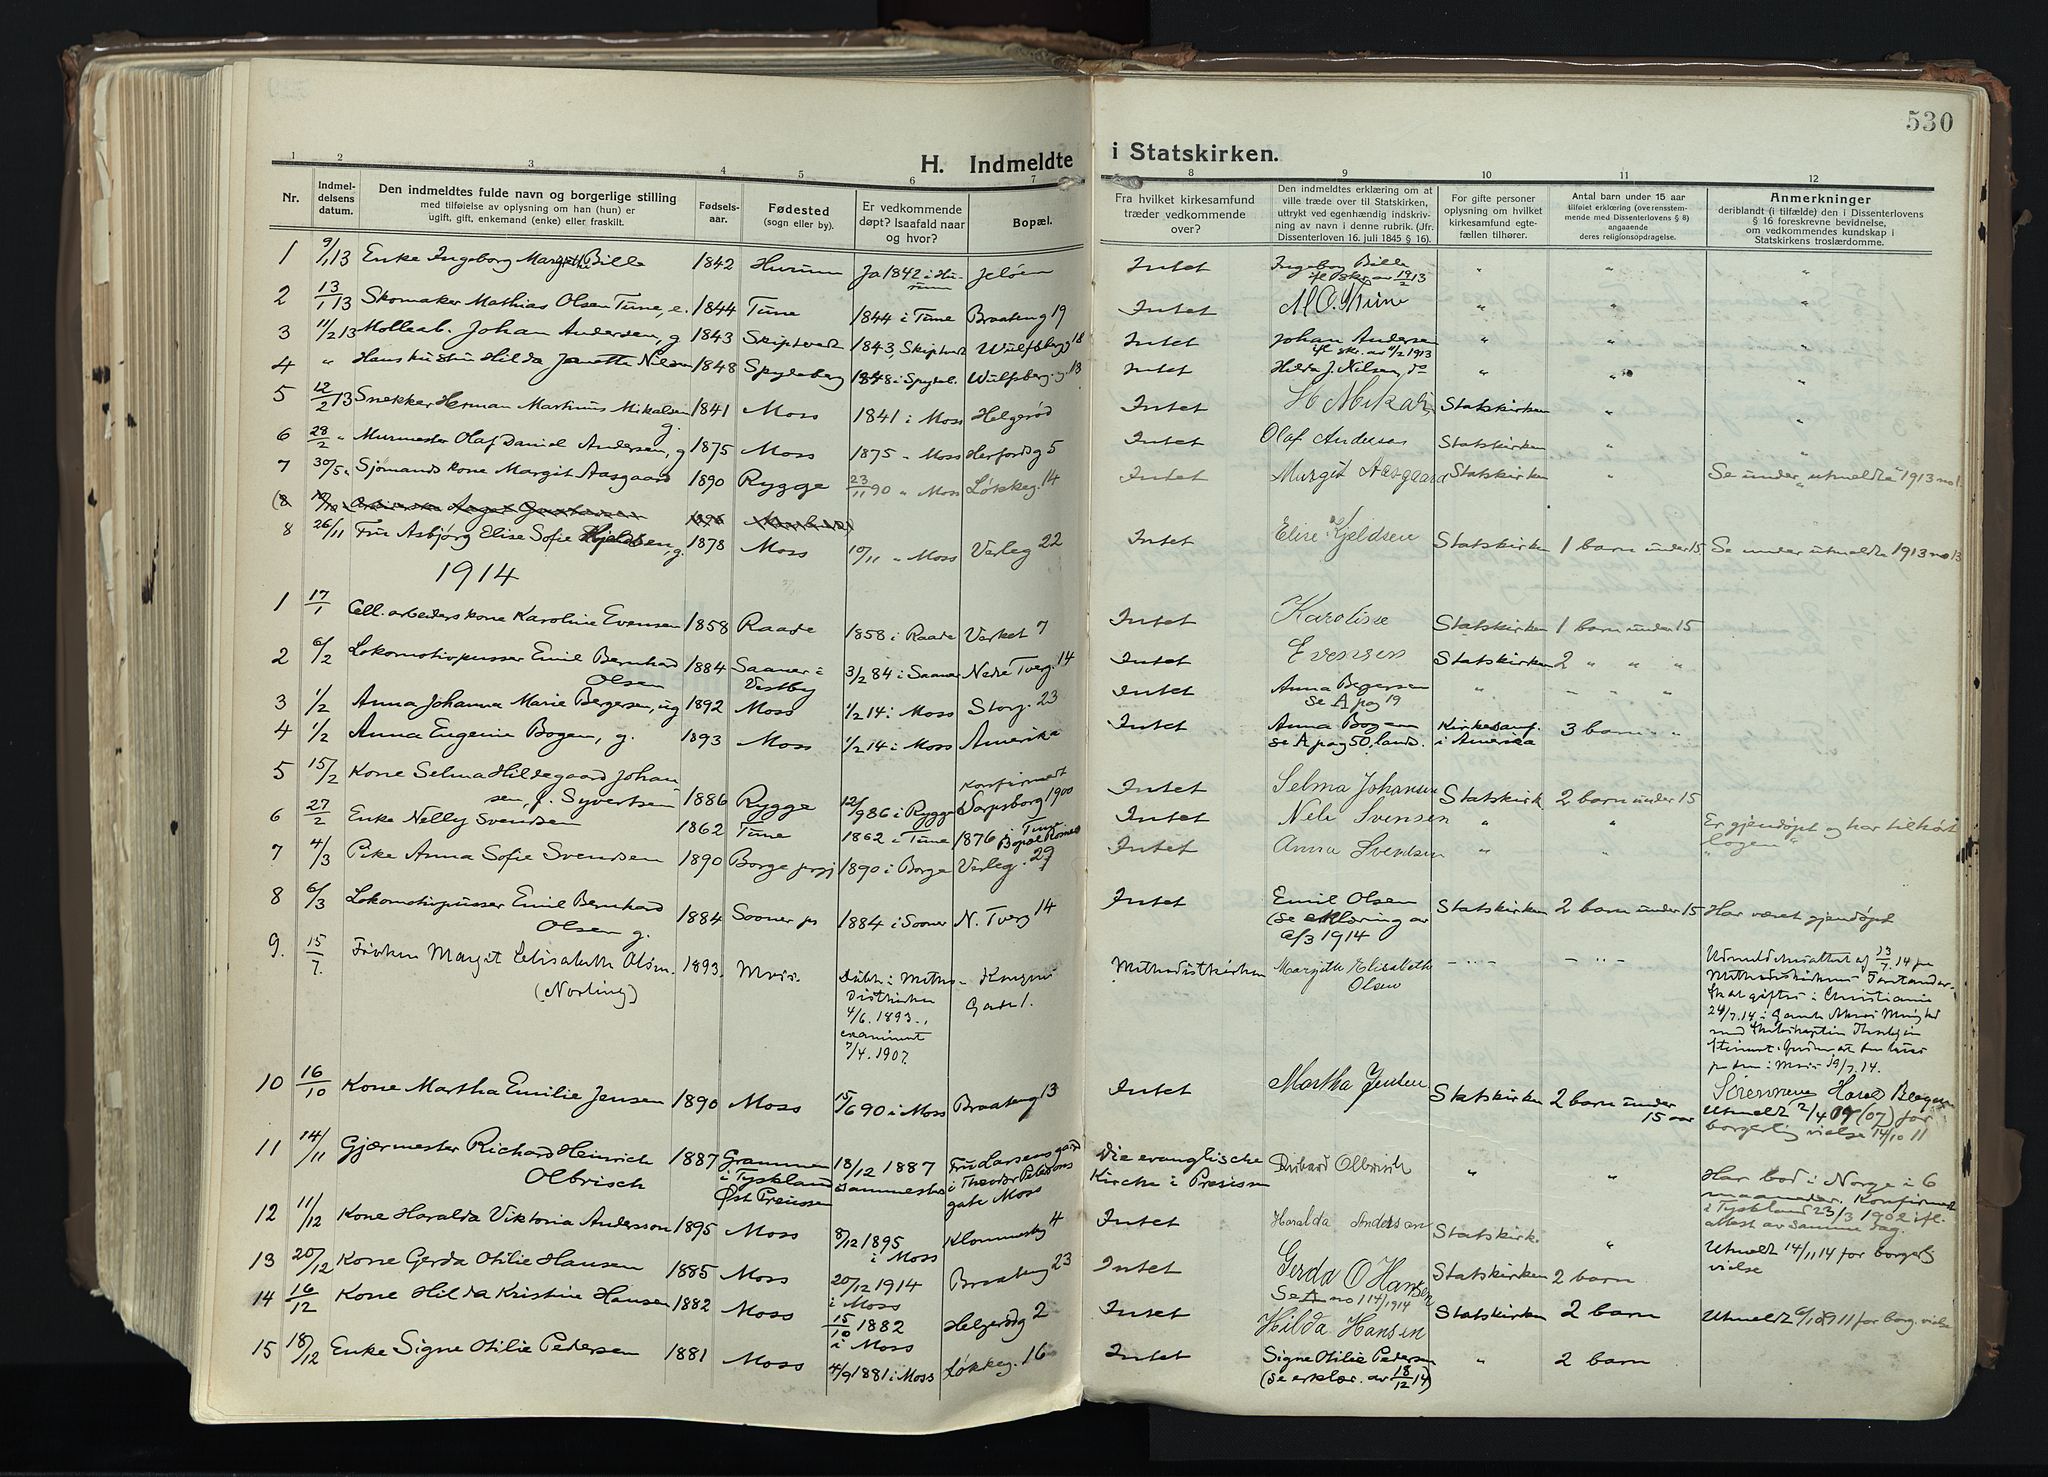 530
H. Indmeldte i Statskirken.
1 2 3 4 5 6 7 8 9 10 11 12
Nr.
Indmeldelsens datum.
Den indmeldtes fulde navn og borgerlige stilling
med tilføielse av oplysning om han (hun) er
ugift, gift, enkemand (enke) eller fraskilt.
Fødselsaar.
Fødested
(sogn eller by).
Er vedkommende
døpt? Isaafald naar
og hvor?
Bopæl.
Fra hvilket kirkesamfund
træder vedkommende
over?
Den indmeldtes erklæring om at
ville træde over til Statskirken,
uttrykt ved egenhændig indskriv-
ning av navn i denne rubrik. (Jfr.
Dissenterloven 16. juli 1845 § 16).
For gifte personer
oplysning om hvilket
kirkesamfund egte-
fællen tilhører.
Antal barn under 15 aar
tilføiet erklæring (overensstem-
mende med Dissenterlovens § 8)
angaaende
deres religionsopdragelse.
Anmerkninger
deriblandt (i tilfælde) den i Dissenterlovens
§ 16 foreskrevne bevidnelse,
om vedkommendes kundskap i
Statskirkens troslærdomme.
1 9/1 13 Enke Ingeborg Margrethe Bille 1842 Hurum Ja 1842 i Hurum Jeløen Intet Ingeborg Bille ifl. skr. av 19/2 13 " " "
2 13/1 13 Skomaker Mathias Olsen Tune, e. 1844 Tune 1844 i Tune Braateng 19 Intet M.O. Tune " " "
3 11/2 13 Mølleab. Johan Andersen, g 1843 Skiptvedt 1843, Skiptvedt Wulfsbergg 18 Intet Johan Andersen ifl. skr. av 11/2 1913 " " "
4 " Hans hustru Hilda Janette Nilsen 1848 Spydeberg 1848 i Spydeb. Wulfsberg.g. 13 Intet Hilda J. Nilsen, do " " "
5 12/2 13 Snekker Herman Martinus Mikalsen g. 1841 Moss 1841 i Moss Helgerød Intet H Mikals Statskirken " "
6 28/2 " Murmester Olaf Daniel Andersen, g 1875 Moss 1875 " Moss Herfordsg 5 Intet Olaf Andersen Statskirken " "
7 30/5 " Sjømands kone Margit Aasgaard 1890 Rygge 23/11 90 " Moss Løkkeg. 14 Intet Margit Aasgaard Statskirken " Se under "utmeldte" 1913 no 1.
8 26/11 Fru Asbjørg Elise Sofie Kjeldsen, g. 1878 Moss 10/11 " Moss Verleg 22 Intet Elise Kjeldsen Statskirken 1 barn under 15 Se under utmeldte 1913 no 13
1914
1 17/1 Cell. arbeiders kone Karoline Evensen 1858 Raade 1858 i Raade Verket 7 Intet Karoline Statskirken 1 barn under 15
2 6/2 Lokomotivpusser Emil Bernhard Olsen 1884 Saaner i Vestby 3/2 84 i Saaner Nedre Tverg. 14 Intet Evensen Statskirken 2 " " "
3 1/2 Anna Johanna Marie Bergersen, ug 1892 Moss 1/2 14 i Moss Storg. 23 Intet Anna Begersen se A pag 19 " " " "
4 1/2 Anna Eugenie Bogen, g. 1893 Moss 1/2 14 i Moss Amerika Intet Anna Bogen se A pag 50, lands. Kirkesamf. i Amerika 3 barn " "
5 15/2 Kone Selma Hildegaard Johansen, f. Syvertsen 1886 Rygge 12/9 86 i Rygge Konfirmert Sarpsborg 1900 Intet Selma Johansen Statskirk 2 barn under 15
6 27/2 Enke Nelly Svendsen 1862 Tune 1862 i Tune 1876 i Tune Bopæl Moss Intet Neli Svensen " " Er gjendøpt og har tilhørt
7 4/3 Pike Anna Sofie Svendsen 1890 Borge prgj 1890 i Borge Verleg. 29 Intet Anna Svendsen " " logen "
8 6/3 Lokomotivpusser Emil Bernhard Olsen g. 1884 Sooner ps 1884 i Sooner N. Tverg 14 Intet Emil Olsen (se erklæring av 6/3 1914 Statskirken 2 barn under 15 Har været gjendøpt
9. 15/7. Frøken Margit Elisabeth Olsen. (Norling) 1893. Moss. Døbt i Methodistkirken 4/6. 1893., examineret 7/4. 1907. Kongens Gade 1. Methodistkirken Margith Elisabeth Olsen
10 16/10 Kone Martha Emilie Jensen 1890 Moss 15/6 90 i Moss Braateng 13 Intet Martha Jensen Statskirken 2 barn under 15 aar Utmeldt 2/4 09 (07) for borgerlig vielse 14/10 11
11 14/11 Gjærmester Richard Heinrich Olbrisch 1887 Grammen i Tyskland Øst Preussen 18/12 1887 sammesteds Fru Larsens gaard i Theodor Petersons gate Moss Die evanglische Kirche i Preisen Richard Olbrisch " " Har bod i Norge i 6 maaneder. Konfirmert i Tyskland 23/3 1902 ifl. attest av samme dag.
12 11/12 Kone Haralda Viktoria Andersson 1895 Moss 8/12 1895 i Moss Klommesteg 4 Intet Haralda Anderson Statskirk. " Utmeldt 14/11 14 for borgerlig vielse
13 20/12 Kone Gerda Otilie Hansen 1885 Moss 20/12 1914 i Moss Braateng 23 Intet Gerda O Hansen Se A no 114/1914 Statskirken 2 barn
14 16/12 Kone Hilda Kristine Hansen 1882 Moss 15/10 1882 i Moss Helgerødg 2 Intet Hilda Hansen Statskirken 2 barn Utmeldt 6/10 1911 for borg. vielse
15 18/12 Enke Signe Otilie Pedersen 1881 Moss 4/9 1881 i Moss Løkkeg. 16 Intet Signe Otilie Pedersen (se erklær. av 18/12 14) " 2 barn